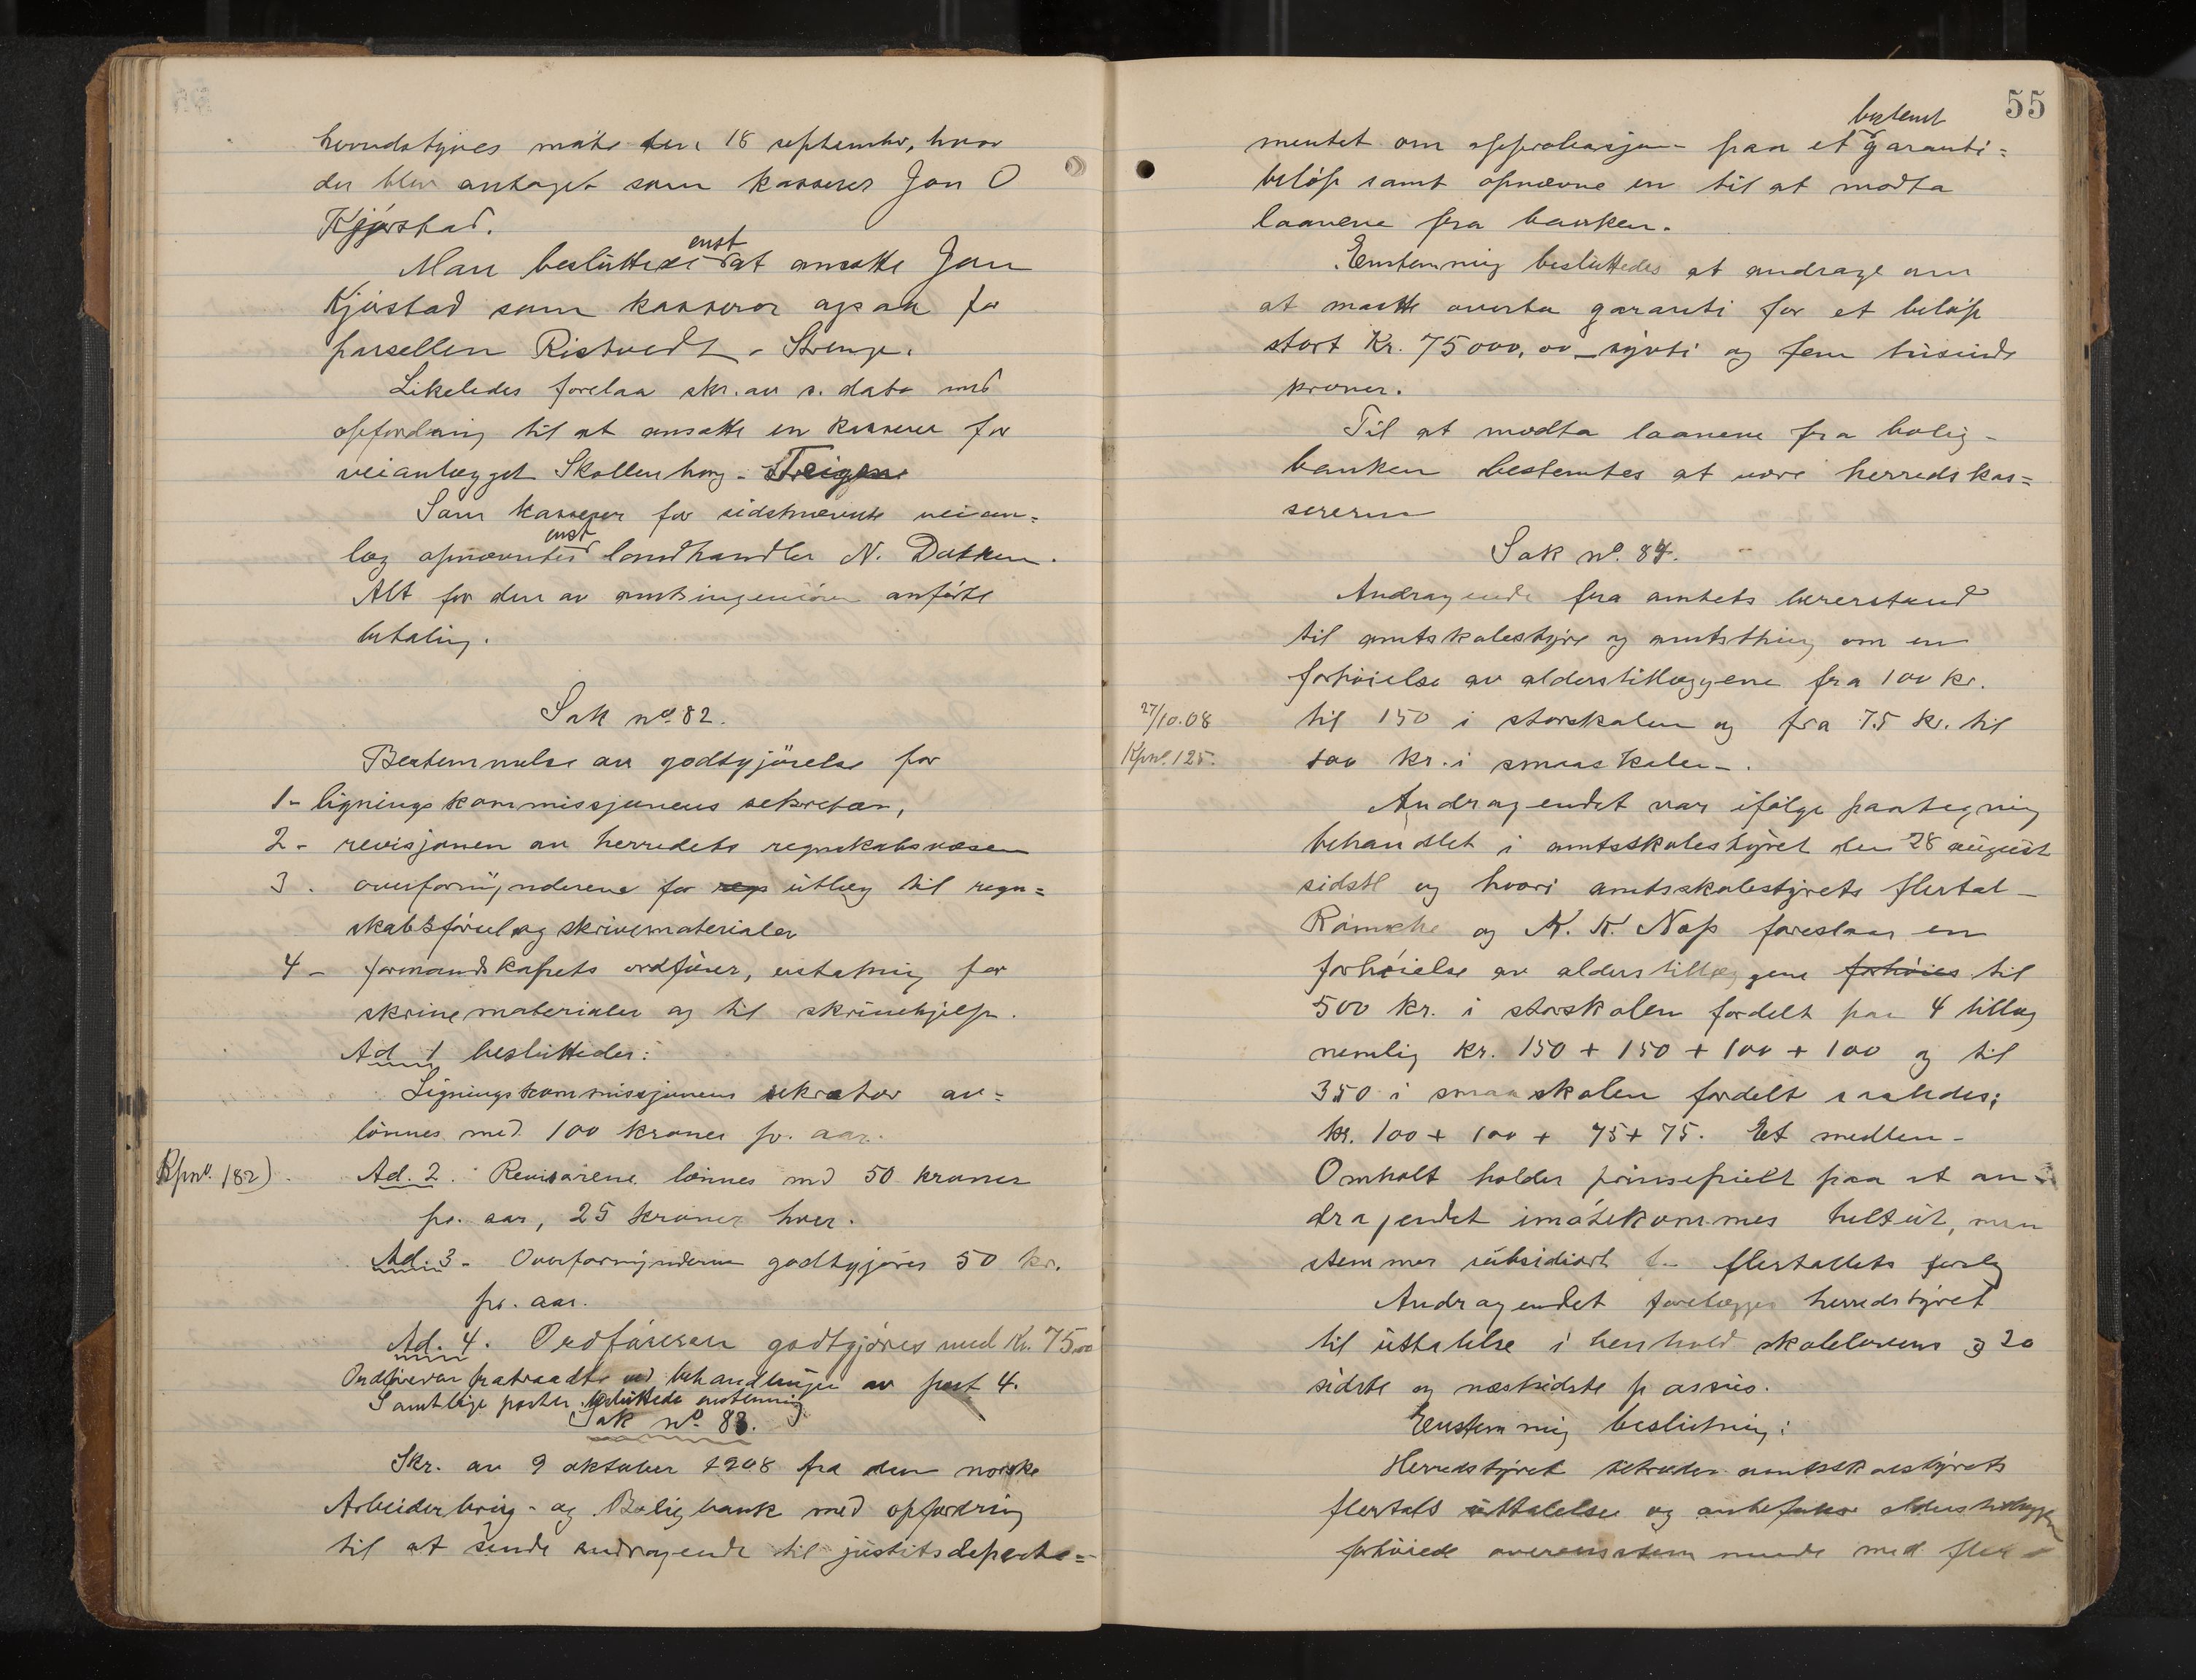 herredstyres møte den 18 september, hvor
der blev antaget som kasserer Jon O
Kjørstad.
enst
Man besluttede at ansætte Jon
Kjørstad som kasserer ogsaa for
parsellen Ristvedt - Strenge.
Likeledes forelaa skr. av s. dato med
opfordring til at ansætte en kasserer for
veianlægget Skollenborg - Teigen
Som kasserer for sidstnævnte veian=
enst
læg opnævntes landhandler N. Dokken.
Alt for den av amtsingeniøren anførte
betaling.
Sak no. 82.
Bestemmelse av godtgjørelse for
1 - ligningskommissjonens sekretær,
2 - revisjonen av herredets regnskabsvæsen
3. overformynderene for regs utlæg til regn=
skabsførsel og skrivematerialer
4 - formandskapets ordfører, erstatning for
skrivematerialer og til skrivehjelp.
Ad 1 besluttedes:
Ligningskommissjonens sekretær av=
lønnes med 100 kroner pr. aar.
Kpnr. 182)
Ad. 2. Revisorene lønnes med 50 kroner
pr. aar, 25 kroner hver.
Ad. 3 - Overformynderne godtgjøres 50 kr.
pr. aar.
Ad. 4. Ordføreren godtgjøres med Kr. 75.00
Ordføreren fratraadte ved behandlingen av post 4.
Samtlige poster besluttedes enstemmig.
Sak no. 83.
Skr. av 9 oktober 1908 fra den norske
Arbeiderbrug- og Boligbank med opfordring
til at sende andragende til justitsdeparte=
55
bestemt
mentet om approbasjon paa et garanti=
beløp samt opnævne en til at modta
laanene fra banken.
Enstemmig besluttedes at andrage om
at maatte overta garanti for et beløp
stort Kr. 75000,00 - sytti og fem tusinde
kroner.
Til at modta laanene fra bolig-
banken bestemtes at være herredskas=
sereren
Sak no. 84.
Andragende fra amtets lærerstand
til amtskolestyre og amtsthing om en
forhøielse av alderstillæggene fra 100 kr.
27/10.08
til 150 i storskolen og fra 75 kr. til
Kpnr. 125.
100 kr. i smaaskolen.
Andragendet var ifølge paategning
behandlet i amtsskolestyret den 28 august
sidstl og hvori amtsskolestyrets flertal -
og K. K. Nap foreslaar en
forhøielse av alderstillæggene forhøies til
500 kr. i storskolen fordelt paa 4 tillæg
nemlig kr. 150 + 150 + 100 + 100 og til
350 i smaaskolen fordelt saaledes:
kr. 100 + 100 + 75 + 75. Et medlem -
Omholt holder prinsipielt paa at an=
dragendet imøtekommes heltut, men
stemmer subsidiært for flertallets forslag
Andragendet forelægges herredstyret
til uttalelse i henhold skolelovens § 20
sidste og næstsidste passus.
Enstemmig beslutning:
Herredstyret tiltræder amtsskolestyrets
flertals uttalelse og anbefaler alderstillæggene
forhøiede overensstemmende med fler